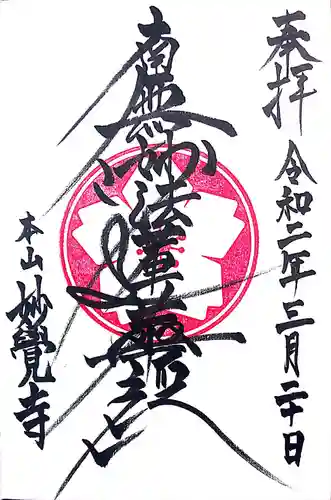 奉拝
令和二年三月二十日
南無妙法蓮華経
本山妙覺寺